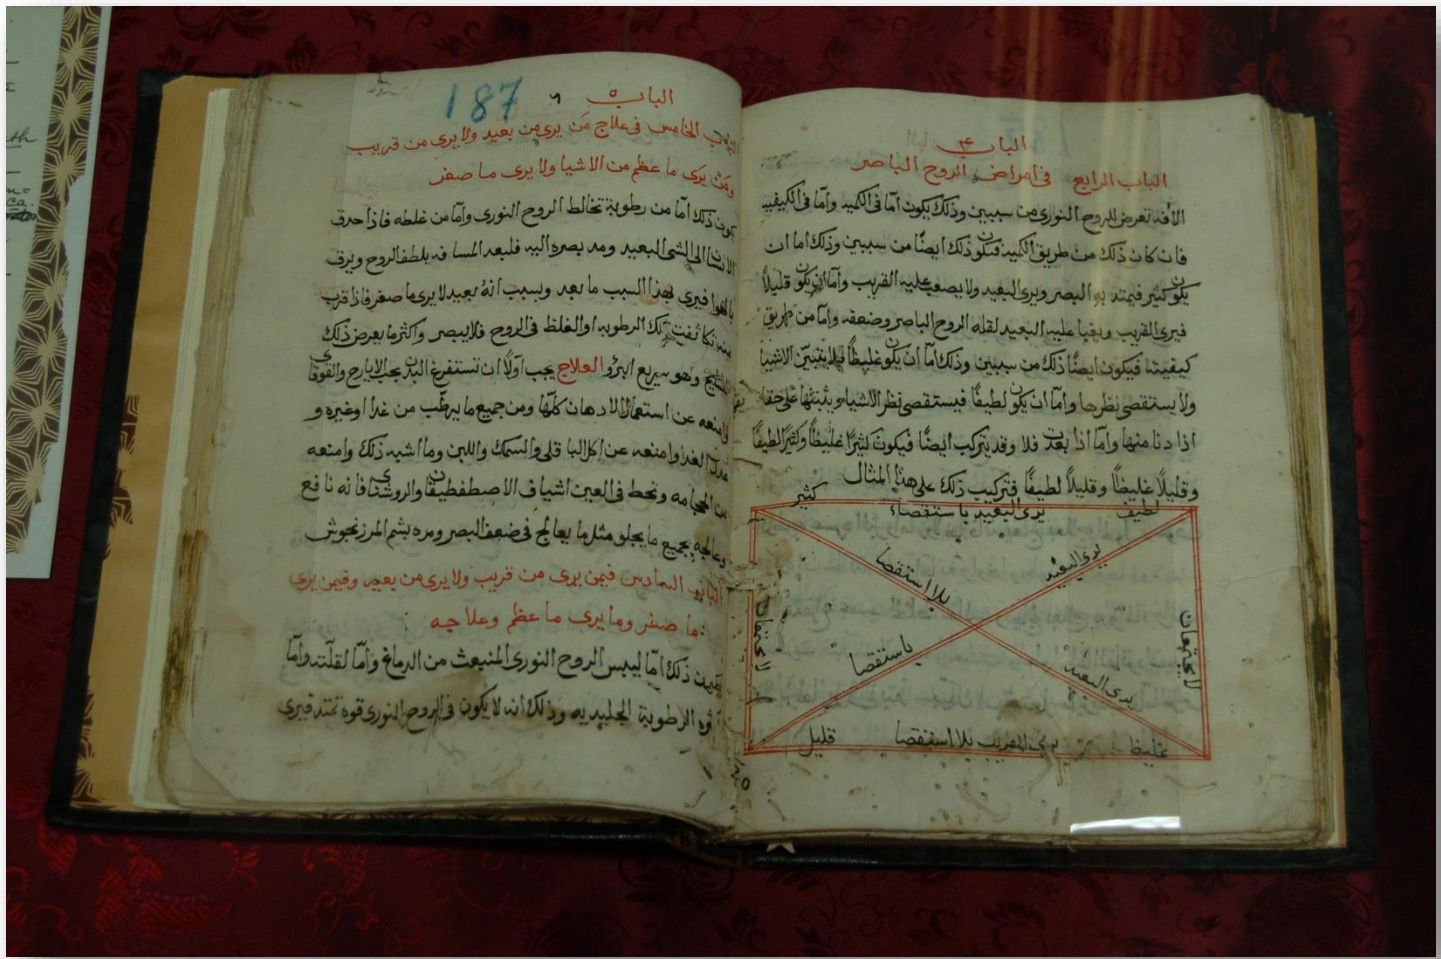 الباب ٤
الباب الرابع في امراض الروح الباصر
الآفة تعرض للروح النوري من سببين وذلك يكون امّا في الكميه وامّا في الكيفيه
فان كان ذلك من طريق الكميه فتكون ذلك ايضًا من سببين وذلك اما ان
يكون كثير فيمتد به البصر ويرى البعيد ولا يصعب عليه القريب وامّا ان يكون قليلاً
فيرى القريب ويخفا عليه البعيد لقله الروح الباصر وضعفه وامّا من طريق
كيفيته فيكون ايضًا ذلك من سببين وذلك امّا ان يكون غليظًا فلا يتبيّن الاشيا
ولا يستقصي نظرها وامّا ان يكون لطيفًا فيستقصي نظر الاشياء ويثبتها على حقا
يقها
اذا دنا منها وامّا اذا بعدت فلا وقد يتركب ايضًا فيكون كثيرًا غليظًا وكثيرًا لطيفًا
وقليلاً غليظًا وقليلاً لطيفًا فتركيب ذلك على هذا المثال
لطيف
يرى البعيد باستقصاء
كثير
يرى البعيد
بلا استقصا
لا يجتمعان
لا يجتمعان
باستقصا
يرى البعيد
غليظ
يرى القريب بلا استقصا
قليل
187
الباب ٥ ٦
الباب الخامس في علاج مَن يرى من بعيد ولا يرى من قريب
ومَن يرى ما عظم من الاشيا ولا يرى ما صغر
يكون ذلك امّا من رطوبة تخالط الروح النوري وامّا من غلظه فاذا حدق
الانسان الى الشي البعيد ومد بصره اليه فلبعد المسافه يلطف الروح ويرق
بالهوا فيرى لهذا السبب ما بعد وبسبب انهُ بعيد لا يرى ما صغر فاذا قرب
منه تكاثفت تلك الرطوبه او الغلظ في الروح فلا يبصر واكثر ما يعرض ذلك
للمشايخ وهو سريع البرؤ العلاج يجب اولاً ان تستفرغ البدن بحب الايارج والقوقايا
وامنعه عن استعمال الادهان كلّها ومن جميع ما يرطّب من غذا وغيره و
عدل الغذا وامنعه عن اكل الباقلى والسمك واللبن وما اشبه ذلك وامنعه
من الحجامه وتحط في العين اشياف الاصطفطيقان والروشنايا فانه نافع
وعالجه بجميع ما يجلو مثل ما يعالج في ضعف البصر ومره بشم المرزنجوش
الباب السادس فيمن يرى من قريب ولا يرى من بعيد وفيمن يرى
ما صغر وما يرى ما عظم وعلاجه
يكون ذلك امّا ليبس الروح النوري المنبعث من الدماغ وامّا لقلّته وامّا
الرطوبة الجليديه وذلك انه لا يكون في الروح النوري قوه تمتد فيرى